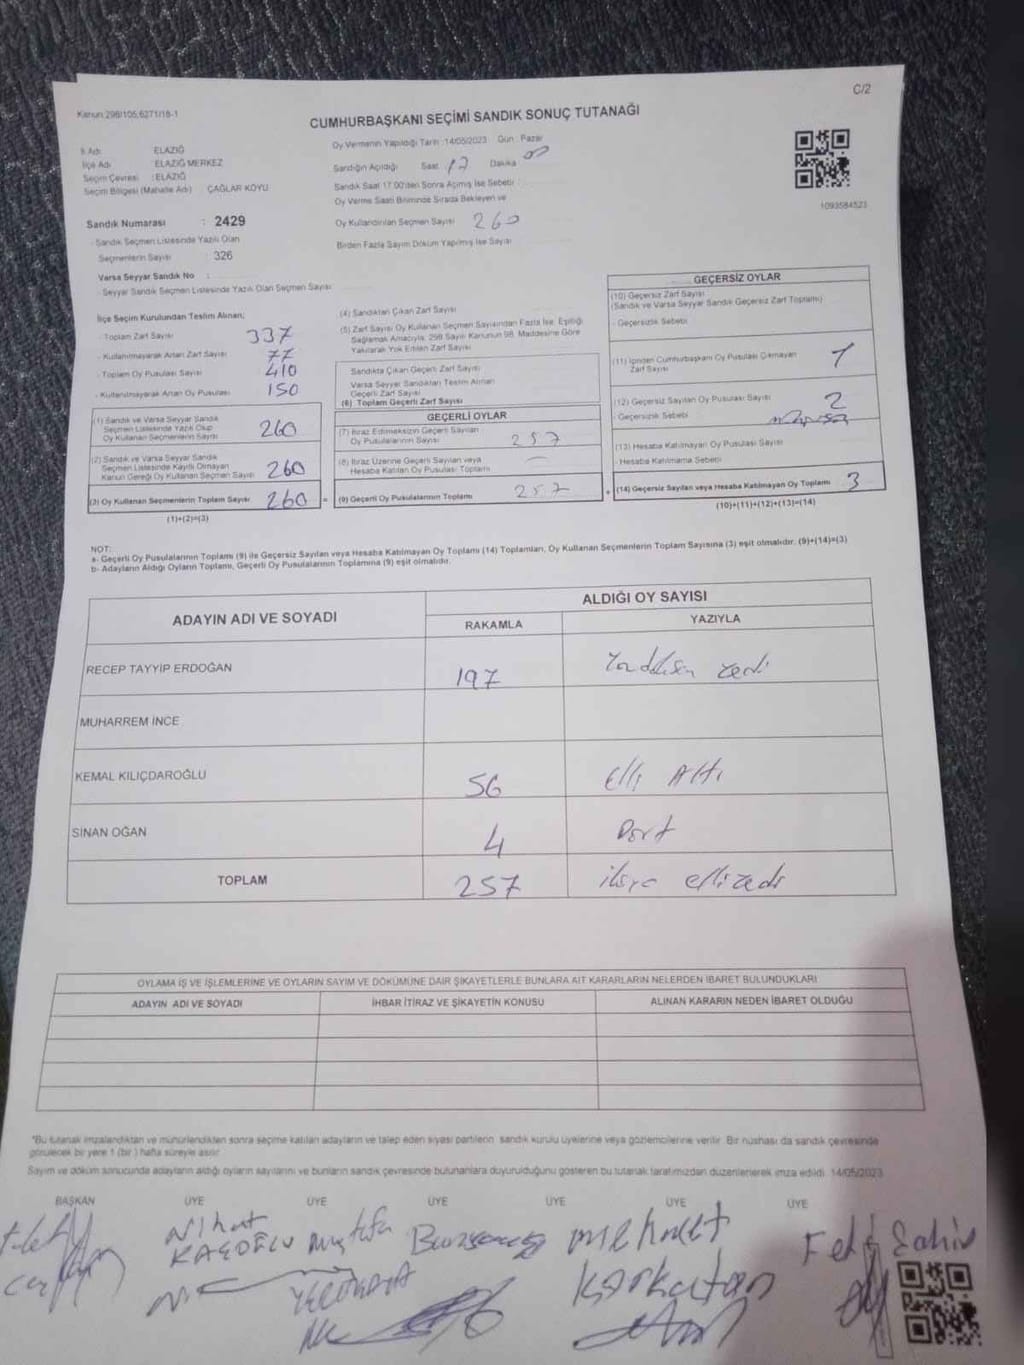 C/2
Kanun 298/105,6271/18-1
CUMHURBAŞKANI SEÇİMİ SANDIK SONUÇ TUTANAĞI
İl Adı : ELAZIĞ
İlçe Adı : ELAZIĞ MERKEZ
Seçim Çevresi : ELAZIĞ
Seçim Bölgesi (Mahalle Adı) ÇAĞLAR KOYU
Oy Vermenin Yapıldığı Tarih :14/05/2023 Gün : Pazar
Sandığın Açıldığı Saat 17 Dakika 00
Sandık Saat 17.00'den Sonra Açılmış İse Sebebi :
Oy Verme Saati Bitiminde Sırada Bekleyen ve
Oy Kullandırılan Seçmen Sayısı 260
Birden Fazla Sayım Döküm Yapılmış İse Sayısı
1093584523
Sandık Numarası : 2429
- Sandık Seçmen Listesinde Yazılı Olan
Seçmenlerin Sayısı : 326
Varsa Seyyar Sandık No :
- Seyyar Sandık Seçmen Listesinde Yazılı Olan Seçmen Sayısı
İlçe Seçim Kurulundan Teslim Alınan;
- Toplam Zarf Sayısı 337
- Kullanılmayarak Artan Zarf Sayısı 77
- Toplam Oy Pusulası Sayısı 410
- Kullanılmayarak Artan Oy Pusulası 150
(1) Sandık ve Varsa Seyyar Sandık
Seçmen Listesinde Yazılı Olup
Oy Kullanan Seçmenlerin Sayısı 260
(2) Sandık ve Varsa Seyyar Sandık
Seçmen Listesinde Kayıtlı Olmayan
Kanun Gereği Oy Kullanan Seçmen Sayısı 260
(3) Oy Kullanan Seçmenlerin Toplam Sayısı 260 =
(1)+(2)=(3)
(4) Sandıktan Çıkan Zarf Sayısı
(5) Zarf Sayısı Oy Kullanan Seçmen Sayısından Fazla İse, Eşitliği
Sağlamak Amacıyla, 298 Sayılı Kanunun 98. Maddesine Göre
Yakılarak Yok Edilen Zarf Sayısı
Sandıkta Çıkan Geçerli Zarf Sayısı
Varsa Seyyar Sandıktan Teslim Alınan
Geçerli Zarf Sayısı
(6) Toplam Geçerli Zarf Sayısı
GEÇERLİ OYLAR
(7) İtiraz Edilmeksizin Geçerli Sayılan
Oy Pusulalarının Sayısı 257
(8) İtiraz Üzerine Geçerli Sayılan veya
Hesaba Katılan Oy Pusulası Toplamı —
(9) Geçerli Oy Pusulalarının Toplamı 257 +
GEÇERSİZ OYLAR
(10) Geçersiz Zarf Sayısı
(Sandık ve Varsa Seyyar Sandık Geçersiz Zarf Toplamı)
- Geçersizlik Sebebi
(11) İçinden Cumhurbaşkanı Oy Pusulası Çıkmayan
Zarf Sayısı 1
(12) Geçersiz Sayılan Oy Pusulası Sayısı 2
- Geçersizlik Sebebi
(13) Hesaba Katılmayan Oy Pusulası Sayısı
- Hesaba Katılmama Sebebi
(14) Geçersiz Sayılan veya Hesaba Katılmayan Oy Toplamı 3
(10)+(11)+(12)+(13)=(14)
NOT:
a- Geçerli Oy Pusulalarının Toplamı (9) ile Geçersiz Sayılan veya Hesaba Katılmayan Oy Toplamı (14) Toplamları, Oy Kullanan Seçmenlerin Toplam Sayısına (3) eşit olmalıdır. (9)+(14)=(3)
b- Adayların Aldığı Oyların Toplamı, Geçerli Oy Pusulalarının Toplamına (9) eşit olmalıdır.
ADAYIN ADI VE SOYADI ALDIĞI OY SAYISI
RAKAMLA YAZIYLA
RECEP TAYYİP ERDOĞAN 197
MUHARREM İNCE
KEMAL KILIÇDAROĞLU 56 Elli Altı
SİNAN OĞAN 4 Dört
TOPLAM 257 ikiyz elliyedi
OYLAMA İŞ VE İŞLEMLERİNE VE OYLARIN SAYIM VE DÖKÜMÜNE DAİR ŞİKAYETLERLE BUNLARA AİT KARARLARIN NELERDEN İBARET BULUNDUKLARI
ADAYIN ADI VE SOYADI İHBAR İTİRAZ VE ŞİKAYETİN KONUSU ALINAN KARARIN NEDEN İBARET OLDUĞU
*Bu tutanak imzalandıktan ve mühürlendikten sonra seçime katılan adayların ve talep eden siyasi partilerin sandık kurulu üyelerine veya gözlemcilerine verilir. Bir nüshası da sandık çevresinde
görülecek bir yere 1 (bir ) hafta süreyle asılır.
Sayım ve döküm sonucunda adayların aldığı oyların sayılarını ve bunların sandık çevresinde bulunanlara duyurulduğunu gösteren bu tutanak tarafımızdan düzenlenerek imza edildi. 14/05/2023
BAŞKAN ÜYE ÜYE ÜYE ÜYE ÜYE ÜYE
Nihat Mustafa Mehmet Şahin
KAÇOĞLU Korkutan